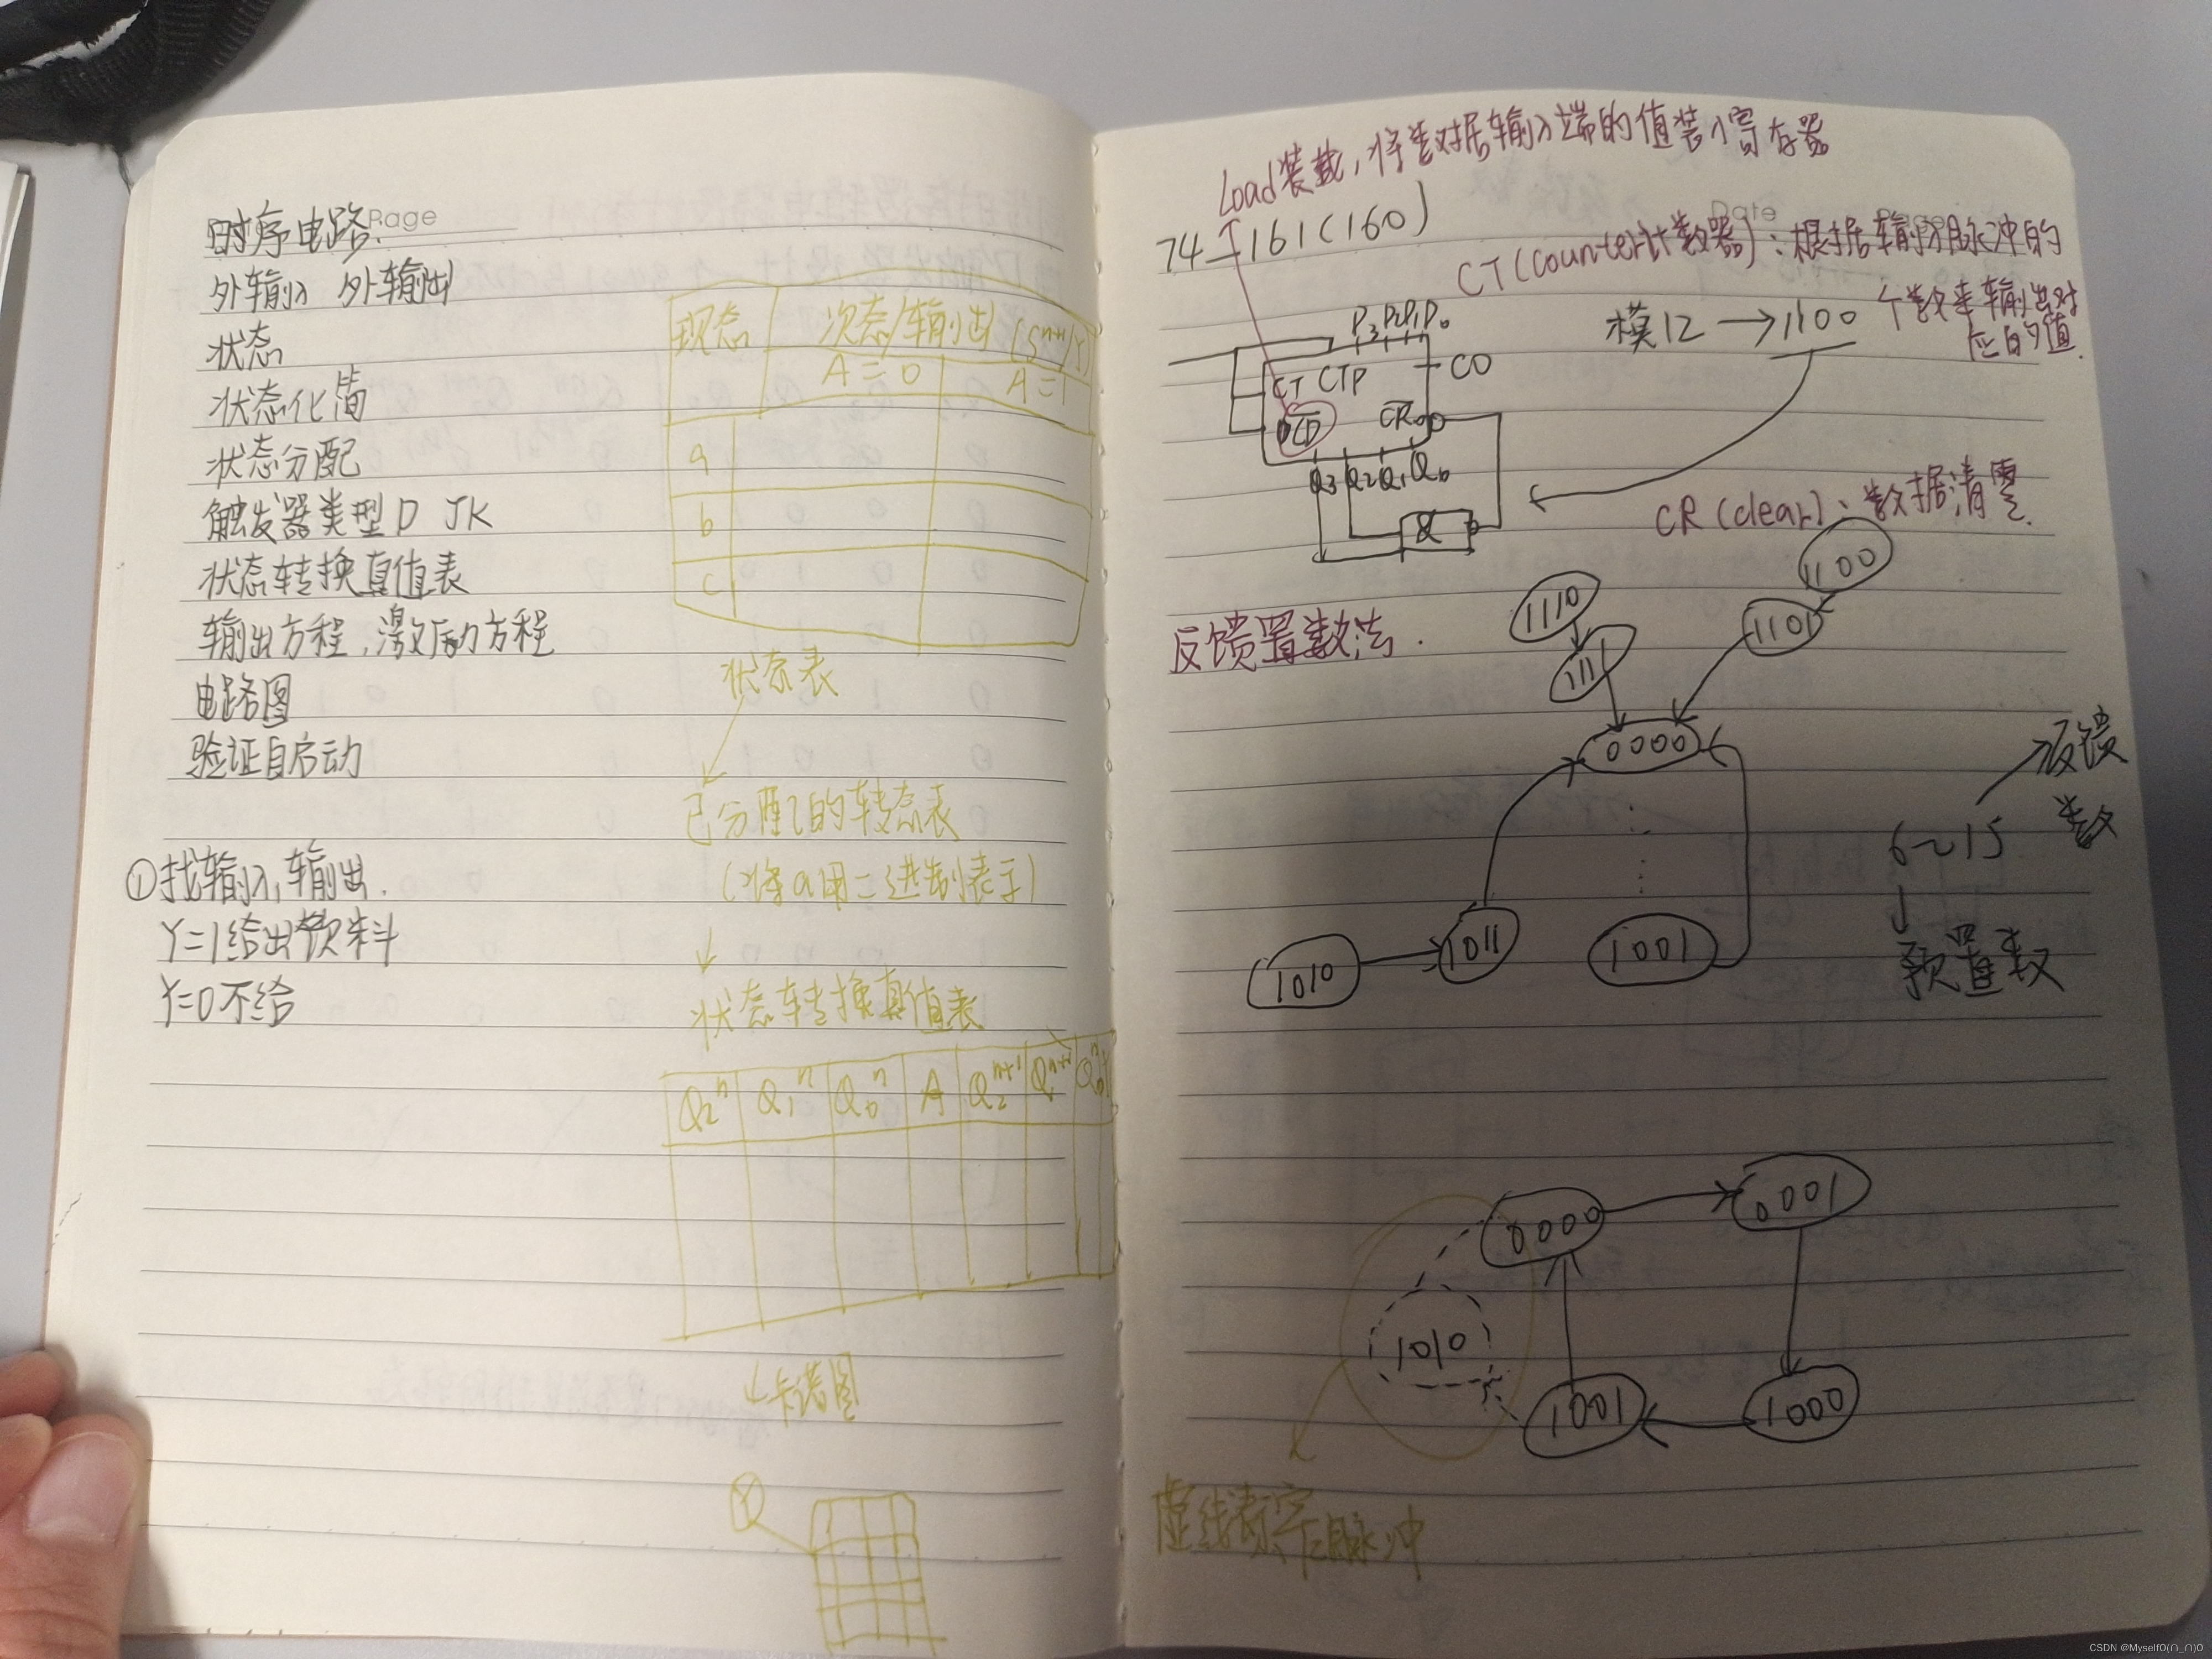 时序电路.
Page
外输入 外输出
状态
状态化简
状态分配
触发器类型D JK
状态转换真值表
输出方程,激励方程
电路图
验证自启动
①找输入,输出.
Y=1给出饮料
Y=0不给
现态 次态/输出 (Sⁿ⁺¹/Y)
A=0 A=1
a
b
c
状态表
已分配的转态表
(将a用二进制表示)
状态转换真值表
Q₂ⁿ Q₁ⁿ Q₀ⁿ A Q₂ⁿ⁺¹ Q₁ⁿ⁺¹ Q₀ⁿ⁺¹
卡诺图
Y
Load装载,将数据输入端的值装入寄存器
74 161(160)
Date
CT(counter计数器):根据输入脉冲的
个数来输出对
应的值.
模12 →1100
P₃P₂P₁P₀
CT CTP
CO
CR
Q₃ Q₂ Q₁ Q₀
&
CR(clear):数据清零.
反馈置数法.
1110
1111
1100
1101
0000
1010
1011
1001
反馈
数
6~15
预置数
0000
0001
1010
1001
1000
虚线表示 脉冲
CSDN @MyselfO(∩_∩)O